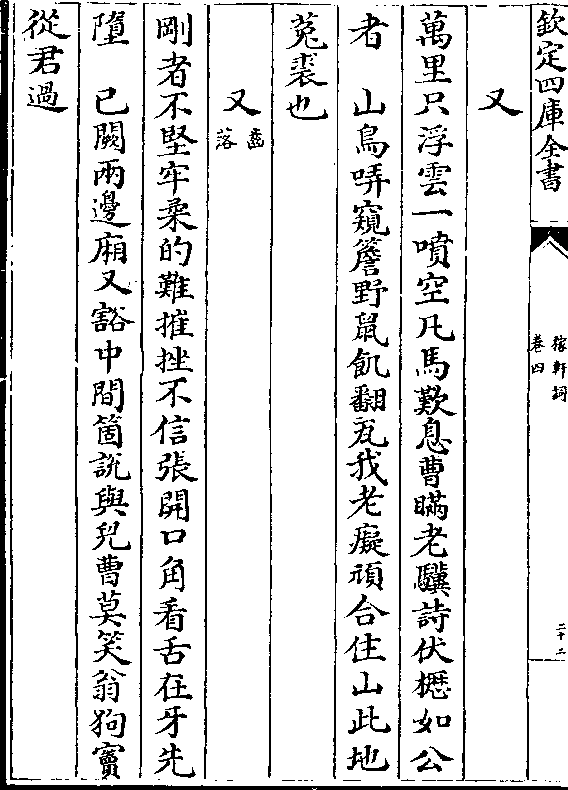 欽定四庫全書
稼軒詞
卷四
二十二
又
萬里只浮雲一噴空凡馬歎息曹瞞老驥詩伏櫪如公
者　山鳥哢窺簷野鼠飢翻瓦我老癡頑合住山此地
菟裘也
又
齒落
剛者不堅牢柔的難摧挫不信張開口角看舌在牙先
墮　已闕兩邊廂又豁中間箇説與兒曹莫笑翁狗竇
從君過